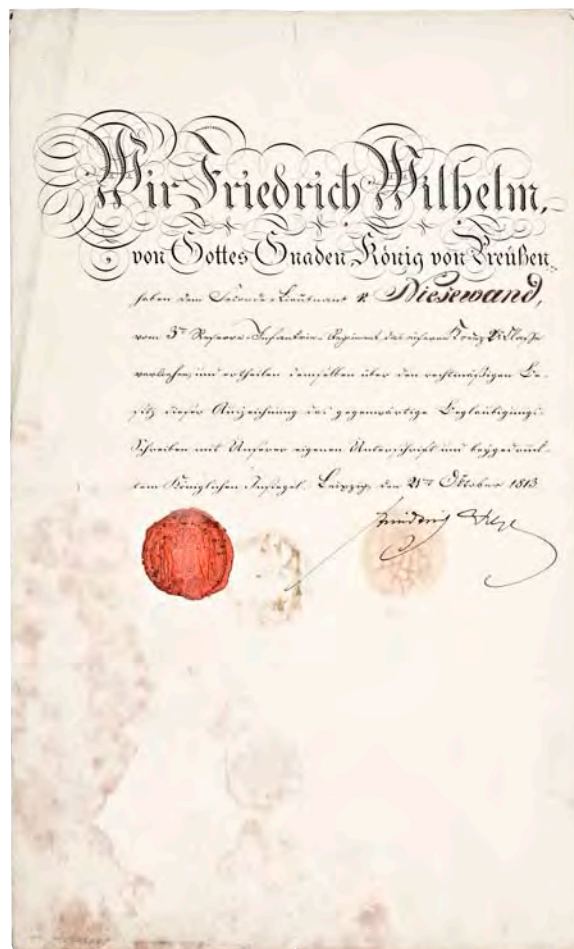 Wir Friedrich Wilhelm,
von Gottes Gnaden König von Preußen,
haben dem Seconde-Lieutnant v. Diesewand,
vom 3ten Reserve-Infanterie-Regiment das eiserne Kreuz 2r Klasse
verliehen, und ertheilen demselben über den rechtmäßigen Be-
sitz dieser Auszeichnung das gegenwärtige Beglaubigungs-
Schreiben mit Unserer eigenen Unterschrift und beygedruck-
tem Königlichen Insiegel. Leipzig, den 21ten Oktober 1813
Friedrich Wilh